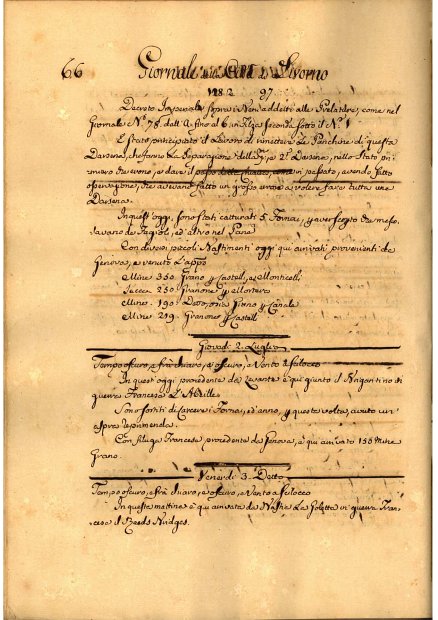 66 Giornale di Livorno
1182 97
Decreto Imperiale sopra i Neri addetti alle Prelature, come nel
Giornale N.º 78 dell' A fino al 6 in Riga seconda sotto il N.º 1
È stato principiato il Lavoro di rimettere le Panchine di questa
Darsena, che fanno la separazione della p.ª e 2.ª Darsena, nello stato pri-
miero che erono, e dare il passo delle in passato, avendo fatto
osservazione, che avevano fatto un grosso errore a volere fare tutta una
Darsena.
In quest' oggi, sono stati catturati 5. Fornai, p aver fatto
di Fagioli, ed altro nel Pane
Con diversi piccoli Bastimenti oggi qui arrivati provenienti da
Genova, è venuto L'app.º
Mine 350. Grano p Castelli, e Monticelli
Sacca 250 Granone p Montero
Mine. 190. Detto, one Fieno p Canale
Mine 219. Granone p Castelli
Giovedì 2. Luglio
Tempo oscuro, e frà duaro, e oscuro, e Vento a Scilocco
In quest' oggi procedente da Levante è quì giunto il Brigantino di
guerra Francese L'Abeille
Sono sortiti di Carcere i Fornai, ed anno, p questa volta, avuto un
aspra reprimenda.
Con filuga Francese procedente da Genova, è qui arrivato 155 Mine
Grano.
Venerdì 3. Detto
Tempo oscuro, e frà duaro, e oscuro, e Vento a Scilocco
In questa mattina è qui arrivata da la Goletta di guerra Fran-
cese